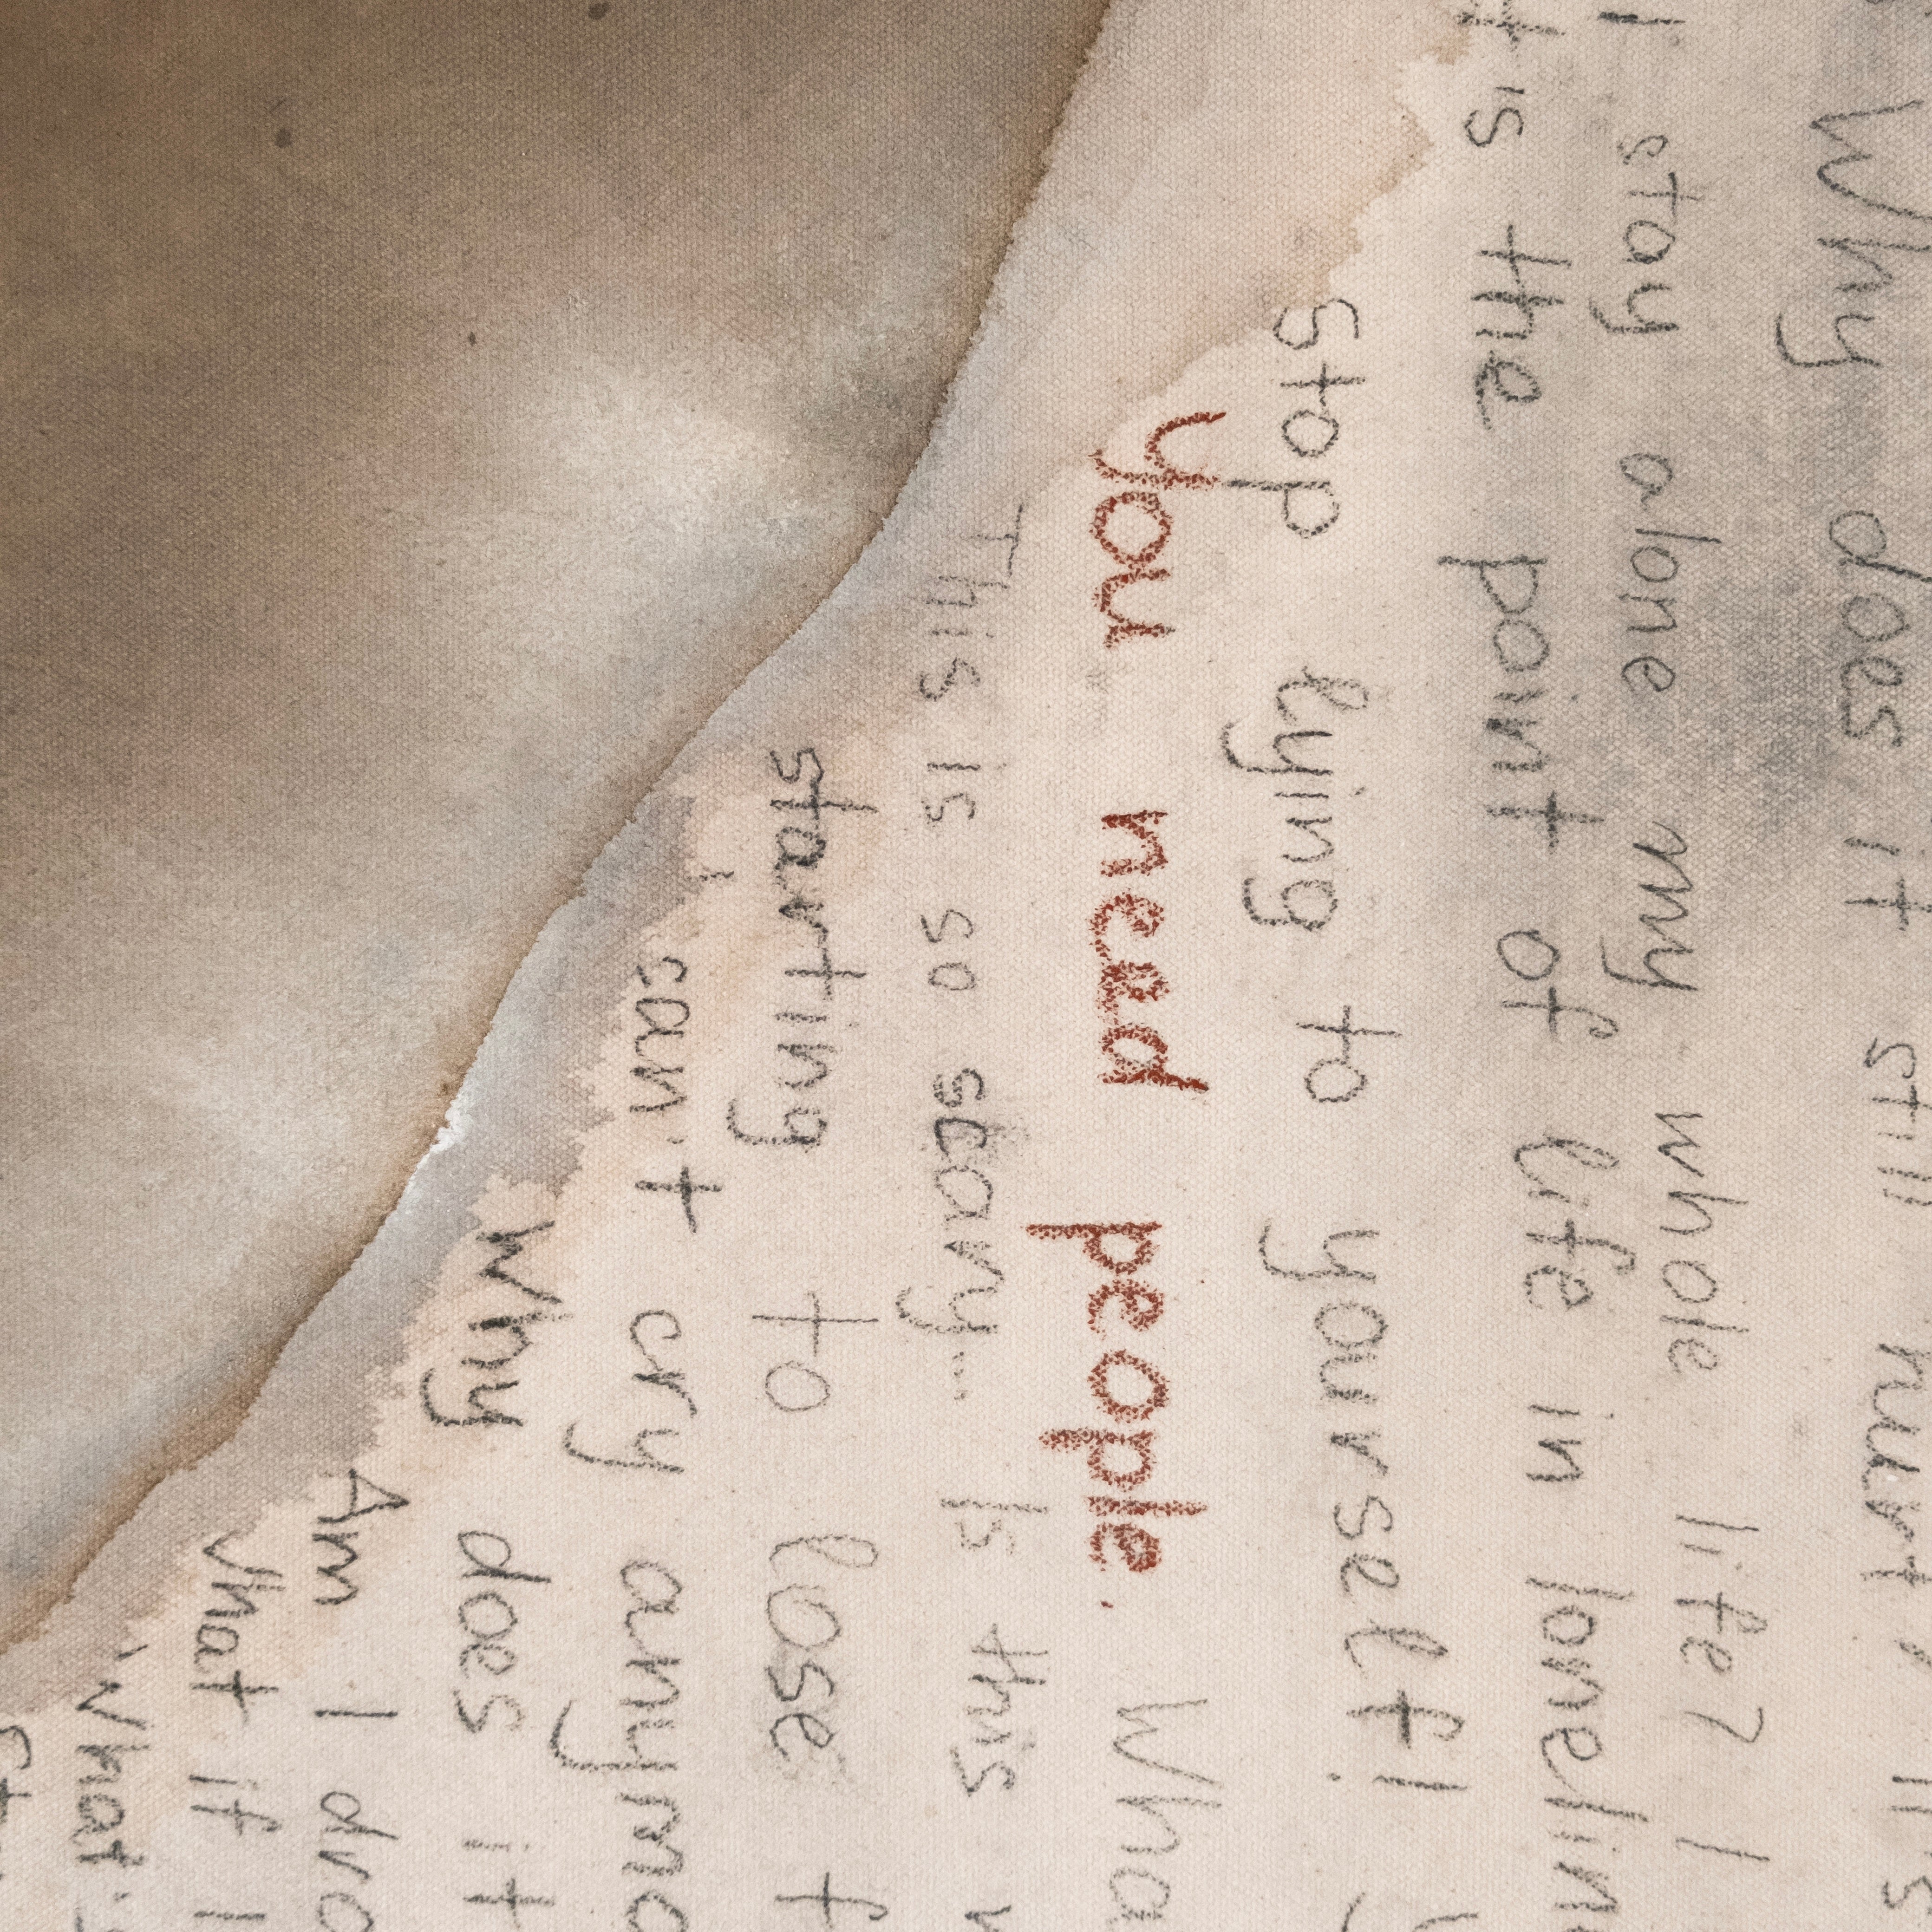 Why does it still hurt
I stay alone my whole life? I
is the point of life in
stop lying to yourself!
you nead people.
This is so scary... Is this
starting to lose
I can't cry
Why does it
Am I
what if I
What